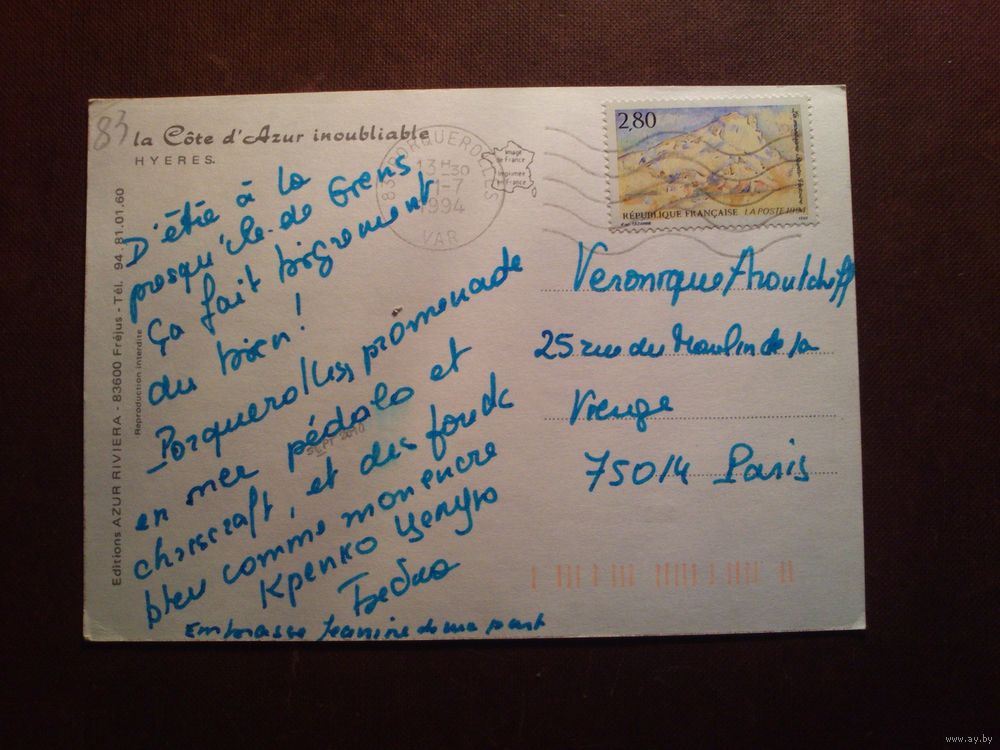 83
la Côte d'Azur inoubliable
HYERES.
D'été à la
presqu'ile de Giens
Ça fait bigrement
du bien!
Porquerolles, promenade
en mer pédalo et
chriscraft, et des fonds
bleu comme mon encre
Крепко Целую
Embrasse Jeanine de ma part
Editions AZUR RIVIERA - 83600 Fréjus - Tél. 94.81.01.60
Reproduction interdite
SEPT 2010
83 PORQUEROLLES
13H30
1-7
1994
VAR
Image
de France
Imprimée
en France
2,80
RÉPUBLIQUE FRANÇAISE LA POSTE 1994
Veronique Aroutcheff
25 rue du Moulin de la
Vierge
75014 Paris
www.ay.by